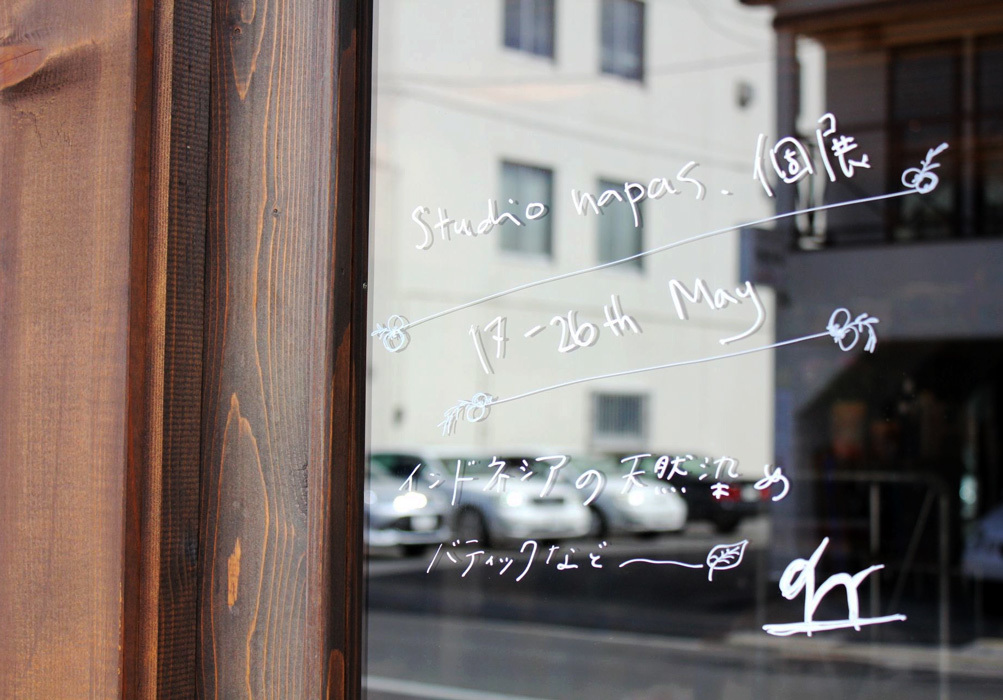 Studio napas. 個展
17-26th May
インドネシアの天然染め
バティックなど